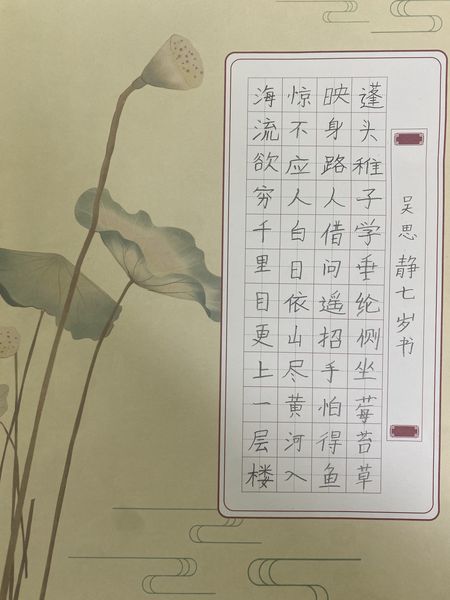 吴思静七岁书
蓬头稚子学垂纶侧坐莓苔草
映身路人借问遥招手怕得鱼
惊不应人白日依山尽黄河入
海流欲穷千里目更上一层楼